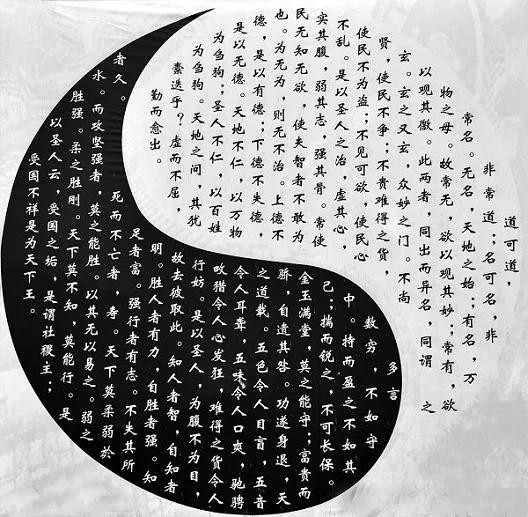 道可道，
非常道；名可名，非
常名。无名，天地之始；有名，万
物之母。故常无，欲以观其妙；常有，欲
以观其徼。此两者，同出而异名，同谓 之
玄。玄之又玄，众妙之门。不尚
贤，使民不争；不贵难得之货，
使民不为盗；不见可欲，使民心
不乱。是以圣人之治，虚其心，
实其腹，弱其志，强其骨。常使
民无知无欲，使夫智者不敢为
也。为无为，则无不治。上德不
德，是以有德；下德不失德，
是以无德。天地不仁，以万物
为刍狗；圣人不仁，以百姓
为刍狗。天地之间，其犹
橐迭乎？虚而不屈，
勤而愈出。
多言
数穷，不如守
中。持而盈之不如其
己；揣而锐之，不可长保。
金玉满堂，莫之能守；富贵而
骄，自遗其咎。功遂身退，天
之道哉。五色令人目盲，五音
令人耳聋，五味令人口爽，驰骋
畋猎令人心发狂，难得之货令人
行妨。是以圣人，为腹不为目，
故去彼取此。知人者智，自知者
明。胜人者有力，自胜者强。知
足者富。强行者有志。不失其所
者久。 死而不亡者，寿。天下莫柔弱於
水。而攻坚强者，莫之能胜。以其无以易之。弱之
胜强。柔之胜刚。天下莫不知，莫能行。是
以圣人云，受国之垢，是谓社稷主；
受国不祥是为天下王。